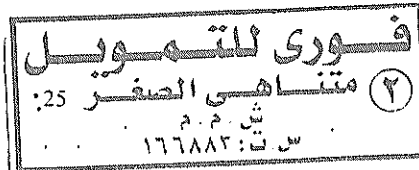 فورى للتمويل
٢ متناهى الصغر 25:
ش.م.م
س.ت: ١٦٦٨٨٣